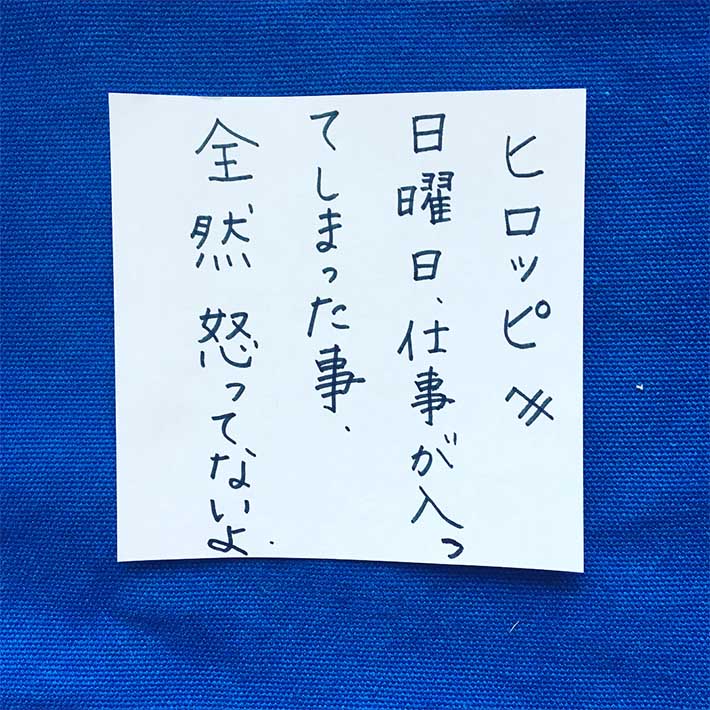 ヒロッピへ
日曜日、仕事が入っ
てしまった事、
全然怒ってないよ.